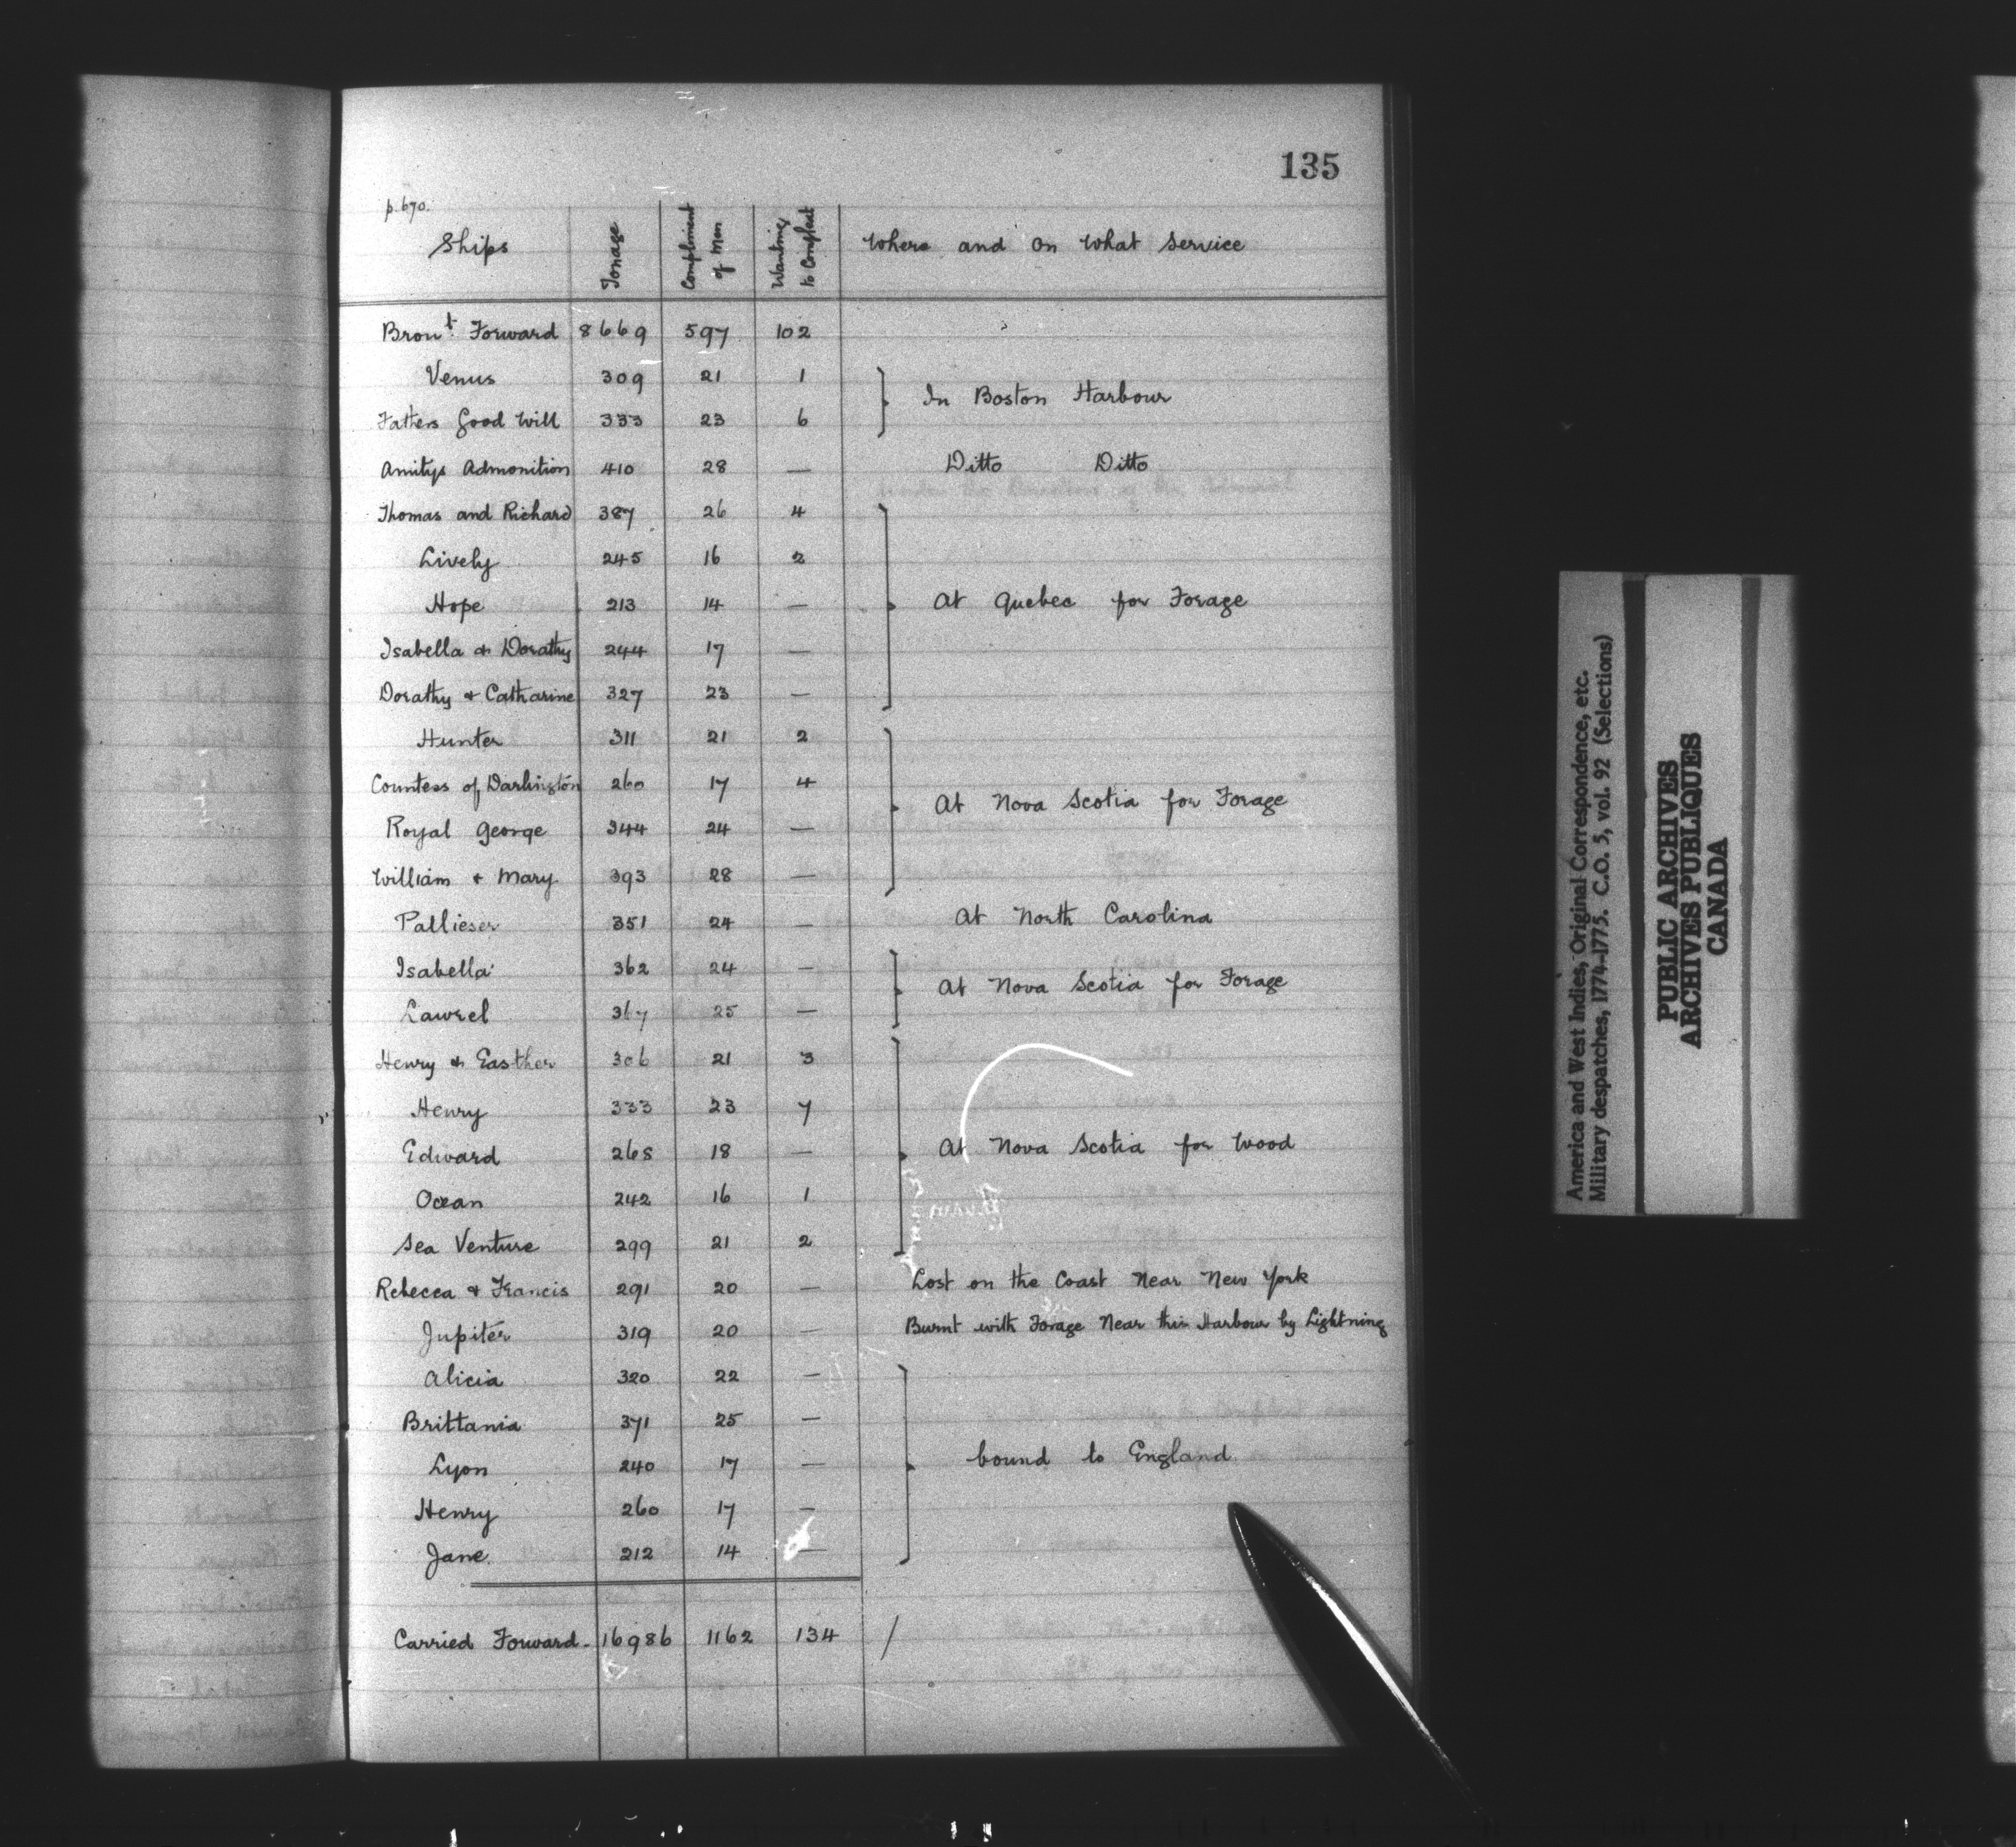 135
p.670.
Ships Tonage Compliment of Men Wanting to Compleat Where and On What Service
Bron.t Forward 8669 597 102
Venus 309 21 1
In Boston Harbour
Fathers Good Will 333 23 6
Amitys Admonition 410 28 — Ditto Ditto
Thomas and Richard 387 26 4
Lively 245 16 2
Hope 213 14 — At Quebec for Forage
Isabella & Dorathy 244 17 —
Dorathy & Catharine 327 23 —
Hunter 311 21 2
Countess of Darlington 260 17 4
At Nova Scotia for Forage
Royal George 344 24 —
William & Mary 393 28 —
Pallieser 351 24 — At North Carolina
Isabella 362 24 —
At Nova Scotia for Forage
Lawrel 367 25 —
Henry & Easther 306 21 3
Henry 333 23 7
Edward 268 18 — At Nova Scotia for Wood
Ocean 242 16 1
Sea Venture 299 21 2
Rebecca & Francis 291 20 — Lost on the Coast Near New York
Jupiter 319 20 — Burnt with Forage Near this Harbour by Lightning
Alicia 320 22 —
Brittania 371 25 —
Lyon 240 17 — bound to England
Henry 260 17 —
Jane 212 14 —
Carried Forward. 16986 1162 134 /
America and West Indies, Original Correspondence, etc.
Military despatches, 1774-1775. C.O. 5, vol. 92 (Selections)
PUBLIC ARCHIVES
ARCHIVES PUBLIQUES
CANADA